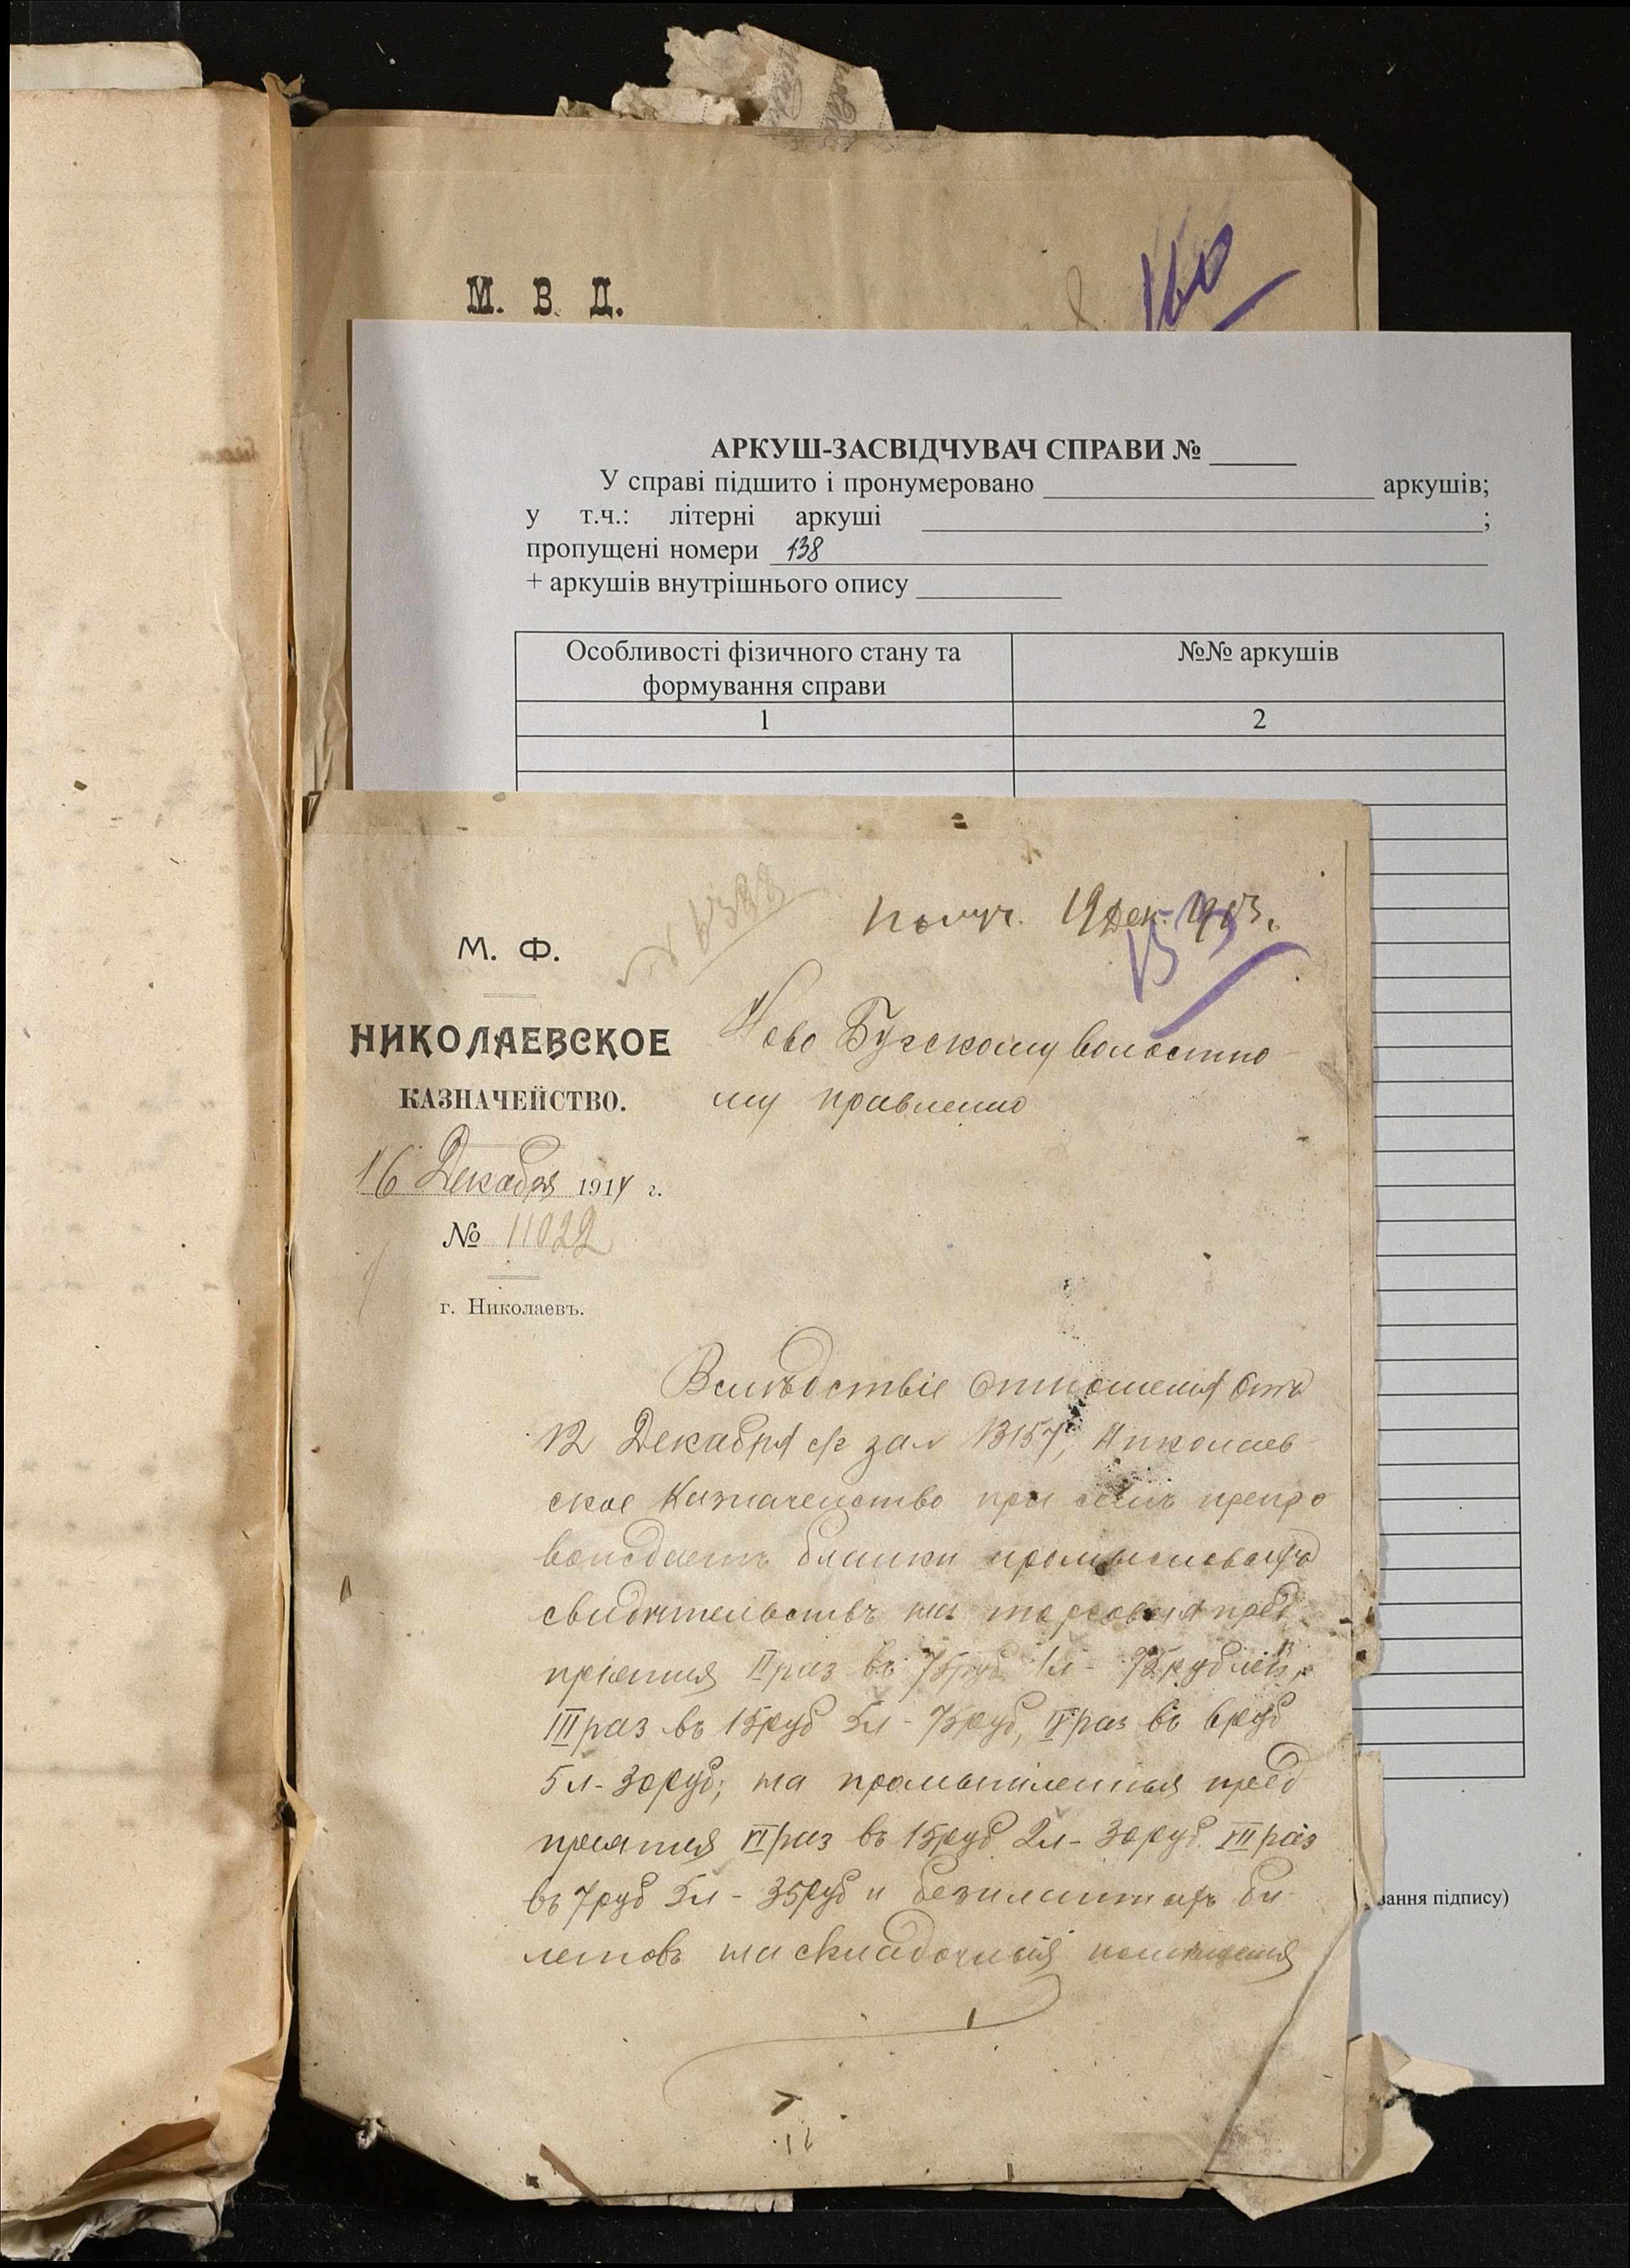 М. В. Д.
160
АРКУШ-ЗАСВІДЧУВАЧ СПРАВИ № ______
У справі підшито і пронумеровано ______ аркушів;
у т.ч.: літерні аркуші ______;
пропущені номери 138
+ аркушів внутрішнього опису ______
Особливості фізичного стану та
формування справи
№№ аркушів
1
2
вання підпису)
№ 6388
Получ. 19 Дек. 1913.
153
М. Ф.
НИКОЛАЕВСКОЕ
КАЗНАЧЕЙСТВО.
16 Декабря 1914 г.
№ 11022
г. Николаевъ.
Ново Бугскому волостно
му правленію
Вслѣдствіе отношенія отъ
12 Декабря с/г за № 13157, Николаев
ское Казначейство при семъ препро
вождаетъ бланки промысловыхъ
свидѣтельствъ на торговыя пред
пріятія II раз въ 75 руб 1 л - 75 рублей,
III раз въ 15 руб 5 л - 75 руб, IV раз въ 6 руб
5 л - 30 руб; на промышленныя пред
пріятія VI раз въ 15 руб 2 л - 30 руб. VII раз
въ 7 руб 5 л - 35 руб и безплатныхъ би
летовъ на складочныя помѣщенія